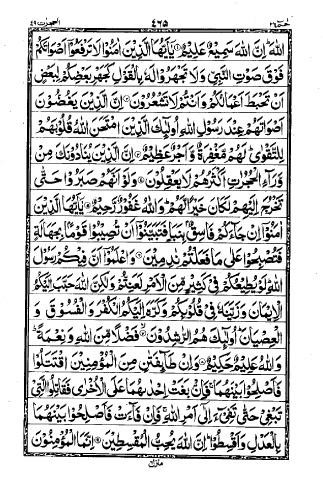 الحجرت ٤٩ ٤٦٥ حم ٢٦
اللهَ اِنَّ اللهَ سَمِيْعٌ عَلِيْمٌ يٰۤاَيُّهَا الَّذِيْنَ اٰمَنُوْا لَا تَرْفَعُوْۤا اَصْوَاتَكُمْ
فَوْقَ صَوْتِ النَّبِيِّ وَلَا تَجْهَرُوْا لَهٗ بِالْقَوْلِ كَجَهْرِ بَعْضِكُمْ لِبَعْضٍ
اَنْ تَحْبَطَ اَعْمَالُكُمْ وَاَنْتُمْ لَا تَشْعُرُوْنَ اِنَّ الَّذِيْنَ يَغُضُّوْنَ
اَصْوَاتَهُمْ عِنْدَ رَسُوْلِ اللهِ اُولٰٓئِكَ الَّذِيْنَ امْتَحَنَ اللهُ قُلُوْبَهُمْ
لِلتَّقْوٰى لَهُمْ مَّغْفِرَةٌ وَّاَجْرٌ عَظِيْمٌ اِنَّ الَّذِيْنَ يُنَادُوْنَكَ مِنْ
وَّرَآءِ الْحُجُرٰتِ اَكْثَرُهُمْ لَا يَعْقِلُوْنَ وَلَوْ اَنَّهُمْ صَبَرُوْا حَتّٰى
تَخْرُجَ اِلَيْهِمْ لَكَانَ خَيْرًا لَّهُمْ وَاللهُ غَفُوْرٌ رَّحِيْمٌ يٰۤاَيُّهَا الَّذِيْنَ
اٰمَنُوْۤا اِنْ جَآءَكُمْ فَاسِقٌۢ بِنَبَاٍ فَتَبَيَّنُوْۤا اَنْ تُصِيْبُوْا قَوْمًۢا بِجَهَالَةٍ
فَتُصْبِحُوْا عَلٰى مَا فَعَلْتُمْ نٰدِمِيْنَ وَاعْلَمُوْۤا اَنَّ فِيْكُمْ رَسُوْلَ
اللهِ لَوْ يُطِيْعُكُمْ فِيْ كَثِيْرٍ مِّنَ الْاَمْرِ لَعَنِتُّمْ وَلٰكِنَّ اللهَ حَبَّبَ اِلَيْكُمُ
الْاِيْمَانَ وَزَيَّنَهٗ فِيْ قُلُوْبِكُمْ وَكَرَّهَ اِلَيْكُمُ الْكُفْرَ وَالْفُسُوْقَ وَ
الْعِصْيَانَ اُولٰٓئِكَ هُمُ الرّٰشِدُوْنَ فَضْلًا مِّنَ اللهِ وَنِعْمَةً
وَاللهُ عَلِيْمٌ حَكِيْمٌ وَاِنْ طَآئِفَتٰنِ مِنَ الْمُؤْمِنِيْنَ اقْتَتَلُوْا
فَاَصْلِحُوْا بَيْنَهُمَا فَاِنْۢ بَغَتْ اِحْدٰىهُمَا عَلَى الْاُخْرٰى فَقَاتِلُوا الَّتِيْ
تَبْغِيْ حَتّٰى تَفِيْٓءَ اِلٰۤى اَمْرِ اللهِ فَاِنْ فَآءَتْ فَاَصْلِحُوْا بَيْنَهُمَا
بِالْعَدْلِ وَاَقْسِطُوْا اِنَّ اللهَ يُحِبُّ الْمُقْسِطِيْنَ اِنَّمَا الْمُؤْمِنُوْنَ